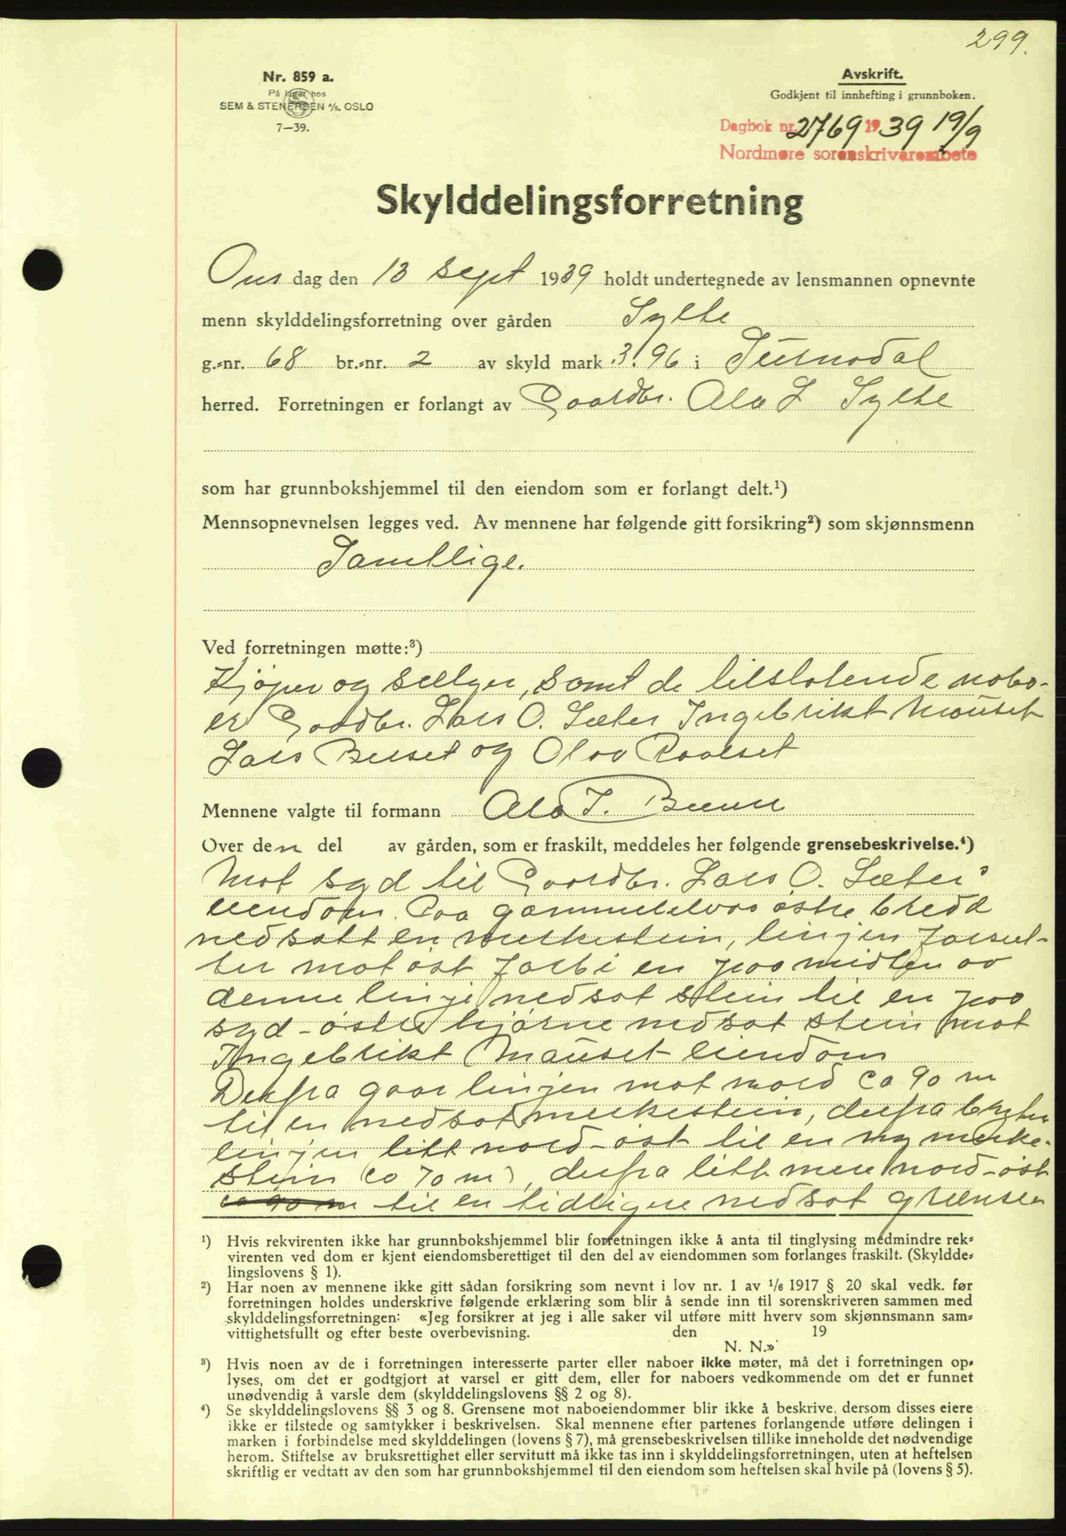 299.
Nr. 859 a.
På lager hos
SEM & STENERSEN A/S. OSLO
7—39.
Avskrift.
Godkjent til innhefting i grunnboken.
Dagbok nr. 2769 1939 19/9
Nordmøre sorenskriverembete
Skylddelingsforretning
Ons dag den 13 sept 1939 holdt undertegnede av lensmannen opnevnte
menn skylddelingsforretning over gården Sylte
g.-nr. 68 br.-nr. 2 av skyld mark 3.96 i Surnadal
herred. Forretningen er forlangt av Gaardbr. Ola L Sylte
som har grunnbokshjemmel til den eiendom som er forlangt delt.¹)
Mennsopnevnelsen legges ved. Av mennene har følgende gitt forsikring²) som skjønnsmenn
Samtlige.
Ved forretningen møtte:³)
Kjøper og sælger, samt de tilstøtende nabo-
er Gaardbr. Lars O. Sæter Ingebrikt Mauset
Lars Beset og Olav Raaeset
Mennene valgte til formann Ola J. Bruun
Over den del av gården, som er fraskilt, meddeles her følgende grensebeskrivelse.⁴)
Mot syd til Gaardbr. Lars O. Sæter's
eiendom. Paa gammelelvas østre bredd
nedsatt en merkestein, linjen forset-
ter mot øst forbi en paa midten av
denne linje nedsat stein til en paa
syd-østre hjørne nedsat stein mot
Ingebrikt Mauset eiendom
Derfra gaar linjen mot nord ca 90 m
til en nedsat merkestein, derfra bryter
linjen litt nord-øst til en ny merke-
stein (ca 70 m), derfra litt mere nord-øst
ca 90 m til en tidligere nedsat grænse
¹) Hvis rekvirenten ikke har grunnbokshjemmel blir forretningen ikke å anta til tinglysing medmindre rek-
virenten ved dom er kjent eiendomsberettiget til den del av eiendommen som forlanges fraskilt. (Skyldde-
lingslovens § 1).
²) Har noen av mennene ikke gitt sådan forsikring som nevnt i lov nr. 1 av 1/6 1917 § 20 skal vedk. før
forretningen holdes underskrive følgende erklæring som blir å sende inn til sorenskriveren sammen med
skylddelingsforretningen: «Jeg forsikrer at jeg i alle saker vil utføre mitt hverv som skjønnsmann sam-
vittighetsfullt og efter beste overbevisning. den 19
N. N.»
³) Hvis noen av de i forretningen interesserte parter eller naboer ikke møter, må det i forretningen op-
lyses, om det er godtgjort at varsel er gitt dem, eller for naboers vedkommende om det er funnet
unødvendig å varsle dem (skylddelingslovens §§ 2 og 8).
⁴) Se skylddelingslovens §§ 3 og 8. Grensene mot naboeiendommer blir ikke å beskrive, dersom disses eiere
ikke er tilstede og samtykker i beskrivelsen. Skal mennene efter partenes forlangende utføre delingen i
marken i forbindelse med skylddelingen (lovens § 7), må grensebeskrivelsen tillike inneholde det nødvendige
herom. Stiftelse av bruksrettighet eller servitutt må ikke tas inn i skylddelingsforretningen, uten at heftelsen
skriftlig er vedtatt av den som har grunnbokshjemmel til den eiendom som heftelsen skal hvile på (lovens § 5).